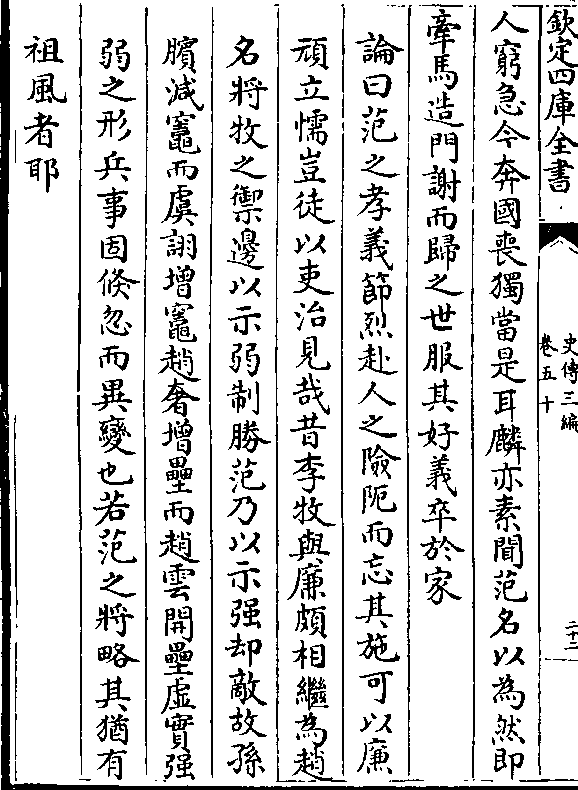 欽定四庫全書
史傳三編
卷五十
二十二
人窮急今奔國喪獨當是耳麟亦素聞范名以為然即
牽馬造門謝而歸之世服其好義卒於家
論曰范之孝義節烈赴人之險阨而忘其施可以廉
頑立懦豈徒以吏治見哉昔李牧與廉頗相繼為趙
名將牧之禦邊以示弱制勝范乃以示强却敵故孫
臏減竈而虞詡增竈趙奢增壘而趙雲開壘虛實强
弱之形兵事固倐忽而異變也若范之將略其猶有
祖風者耶